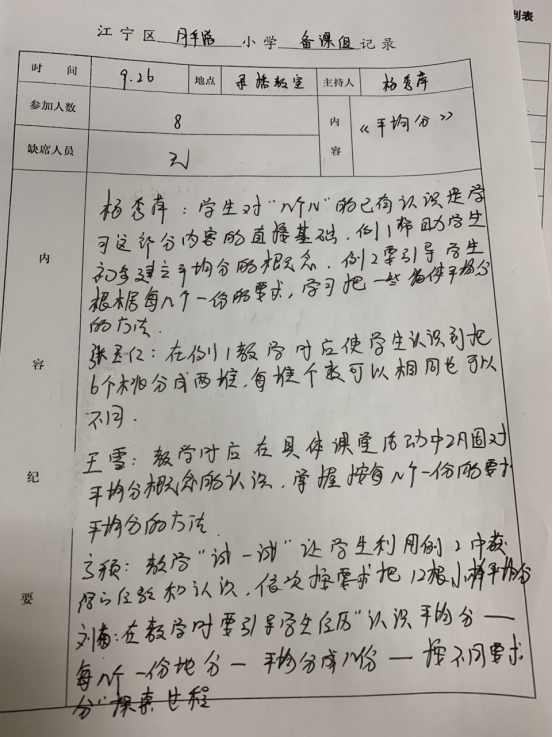 列表
江宁区 月华路 小学 备课组 记录
时间 9.26 地点 录播教室 主持人 杨秀萍
参加人数 8 内容 《平均分》
缺席人员 无
内容纪要
杨秀萍：学生对“几个几”的已有认识是学
习这部分内容的直接基础，例1帮助学生
初步建立平均分的概念，例2要引导学生
根据每几个一份的要求，学习把一些物体平均分
的方法.
在例1教学时应使学生认识到把
6个桃分成两堆，每堆个数可以相同也可以
不同.
王雪：教学时应在具体课堂活动中巩固对
平均分概念的认识，掌握按每几个一份的要求
平均分的方法.
教学“试一试”让学生利用例2中获
得的经验和认识，依次按要求把12根小棒平均分
刘菊：在教学时要引导学生经历“认识平均分—
每几个一份地分—平均分成几份—按不同要求
分”探索过程